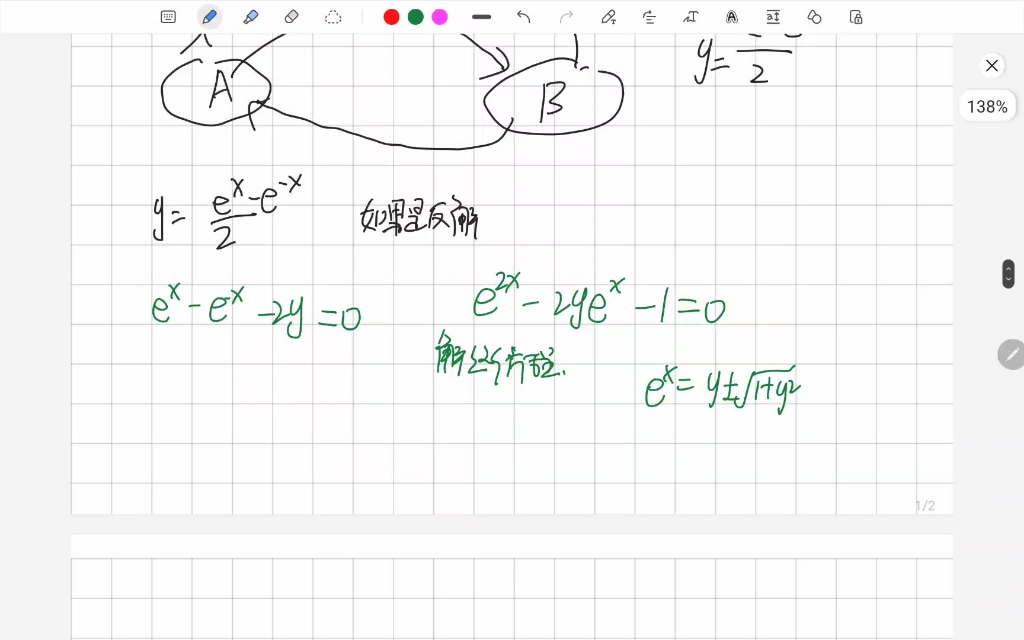 138%
A
B
y=
2
y= e^x-e^-x / 2 如果是反解
e^x - e^x -2y =0 e^2x - 2ye^x -1=0
解这个方程.
e^x= y±√1+y²
1/2